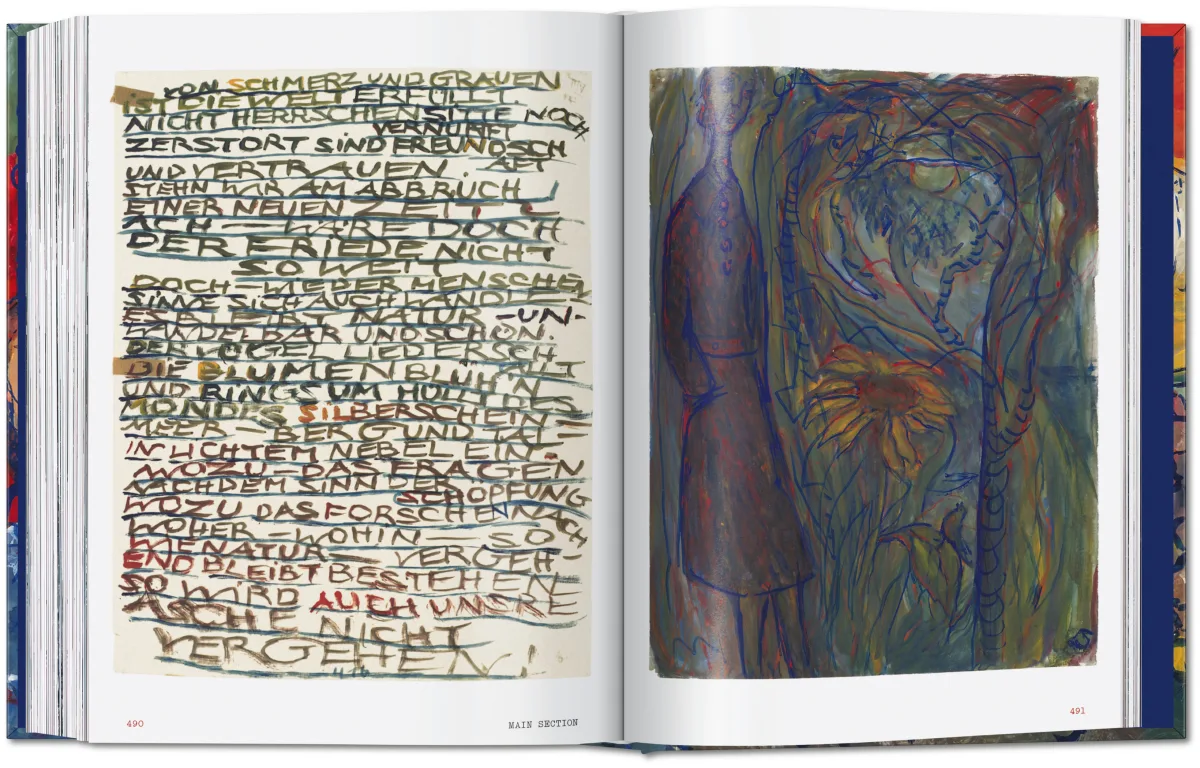 VON SCHMERZ UND GRAUEN
IST DIE WELT ERFÜLLT.
NICHT HERRSCHEN SITTE NOCH
VERNUNFT
ZERSTÖRT SIND FREUNDSCH
AFT
UND VERTRAUEN.
STEHN WIR AM ABBRUCH
EINER NEUEN ZEIT
ACH — WÄRE DOCH
DER FRIEDE NICHT
SO WEIT
DOCH — WIEDER MENSCHEN
SINNE SICH AUCH WANDLEN
ES BLEIBT NATUR — UN-
WANDELBAR UND SCHÖN.
DER VÖGEL LIEDER SCH
ALLT
DIE BLUMEN BLÜH'N
UND RINGS UM HÜLLT DES
MONDES SILBERSCHEIN —
MEER — BERG UND TAL —
IN LICHTEM NEBEL EIN.
WOZU — DAS FRAGEN
NACH DEM SINN DER
SCHÖPFUNG
WOZU DAS FORSCHEN NACH
WOHER — WOHIN — SO
WIE NATUR — VERGEH-
END BLEIBT BESTEHEN
SO WIRD AUCH UNSRE
ASCHE NICHT
VERGEHEN!
490
MAIN SECTION
491